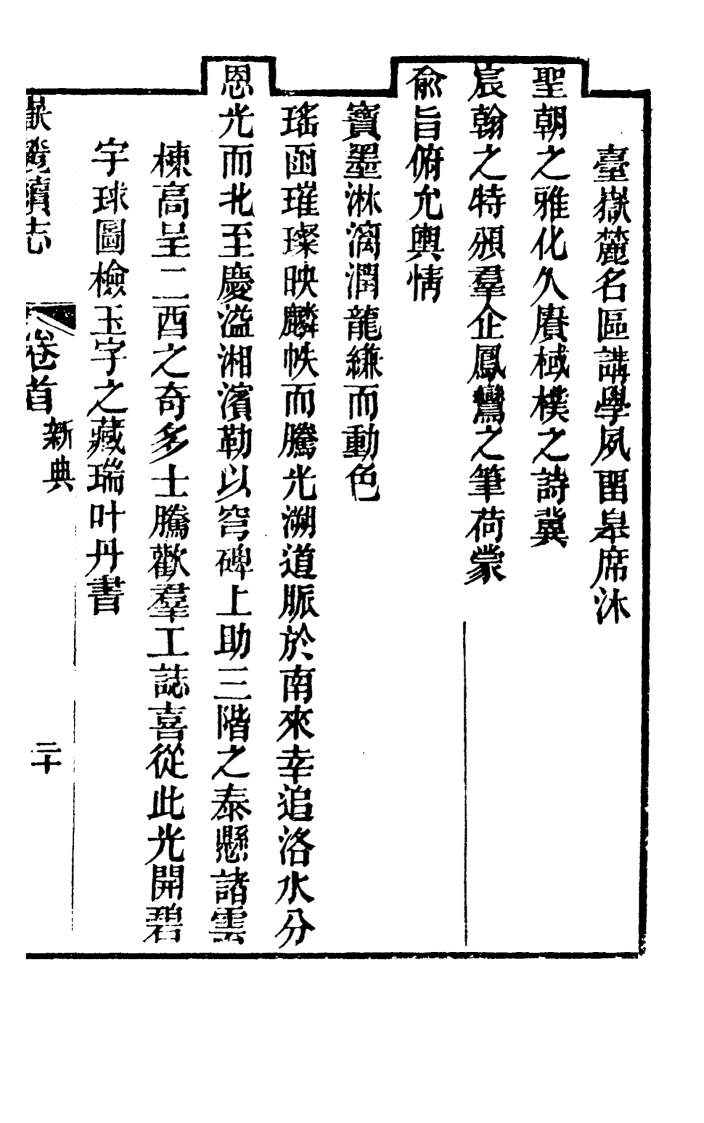 臺嶽麓名區講學夙畱皋席沐
聖朝之雅化久賡棫樸之詩冀
宸翰之特頒羣企鳳鸞之筆荷蒙
俞旨俯允輿情
寶墨淋漓潤龍縑而動色
瑤函璀璨映麟帙而騰光溯道脈於南來幸追洛水分
恩光而北至慶溢湘濱勒以穹碑上助三階之泰懸諸雲
棟高呈二酉之奇多士騰歡羣工誌喜從此光開碧
宇球圖檢玉字之藏瑞叶丹書
續志
卷首
新典
二十